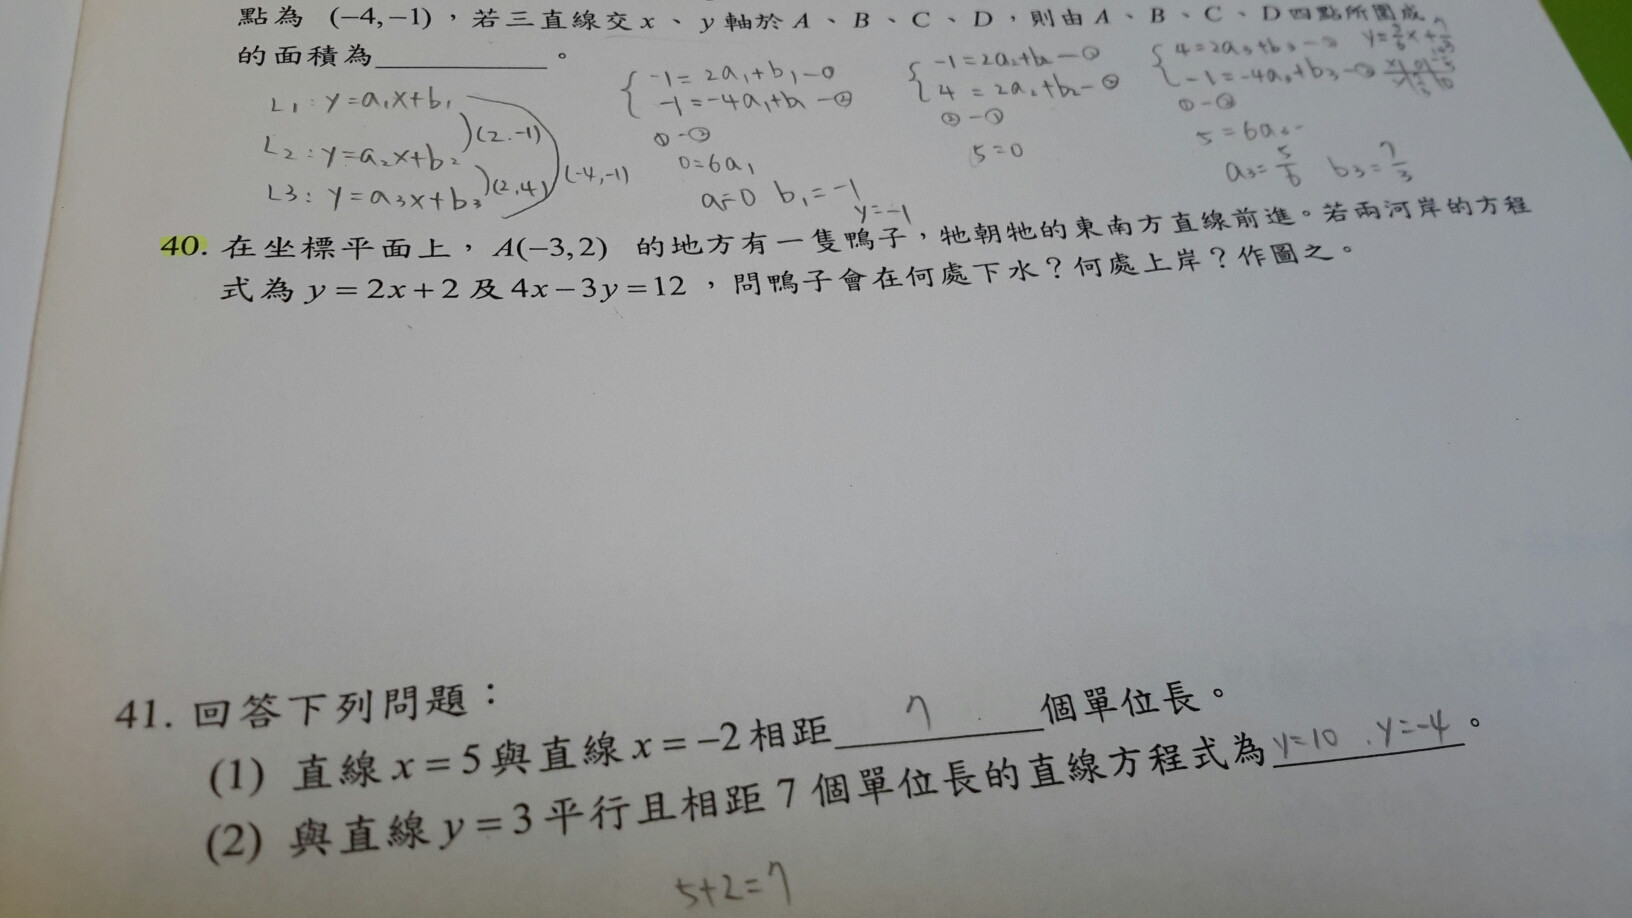 點為 (−4,−1)，若三直線交 x、y 軸於 A、B、C、D，則由 A、B、C、D 四點所圍成
的面積為＿＿＿＿＿。
L₁: y=a₁x+b₁
L₂: y=a₂x+b₂
L3: y=a₃x+b₃
(2.-1)
(2,4)
(-4,-1)
-1=2a₁+b₁-①
-1=-4a₁+b₁-②
①-②
0=6a₁
a₁=0 b₁=-1
y=-1
-1=2a₂+b₂-①
4=2a₂+b₂-②
②-①
5=0
4=2a₃+b₃-①
-1=-4a₃+b₃-②
①-②
5=6a₃
a₃=5/6 b₃=7/3
40. 在坐標平面上，A(−3,2) 的地方有一隻鴨子，牠朝牠的東南方直線前進。若兩河岸的方程
式為 y=2x+2 及 4x−3y=12，問鴨子會在何處下水？何處上岸？作圖之。
41. 回答下列問題：
(1) 直線 x=5 與直線 x=−2 相距 7 個單位長。
(2) 與直線 y=3 平行且相距 7 個單位長的直線方程式為 y=10 , y=-4。
5+2=7